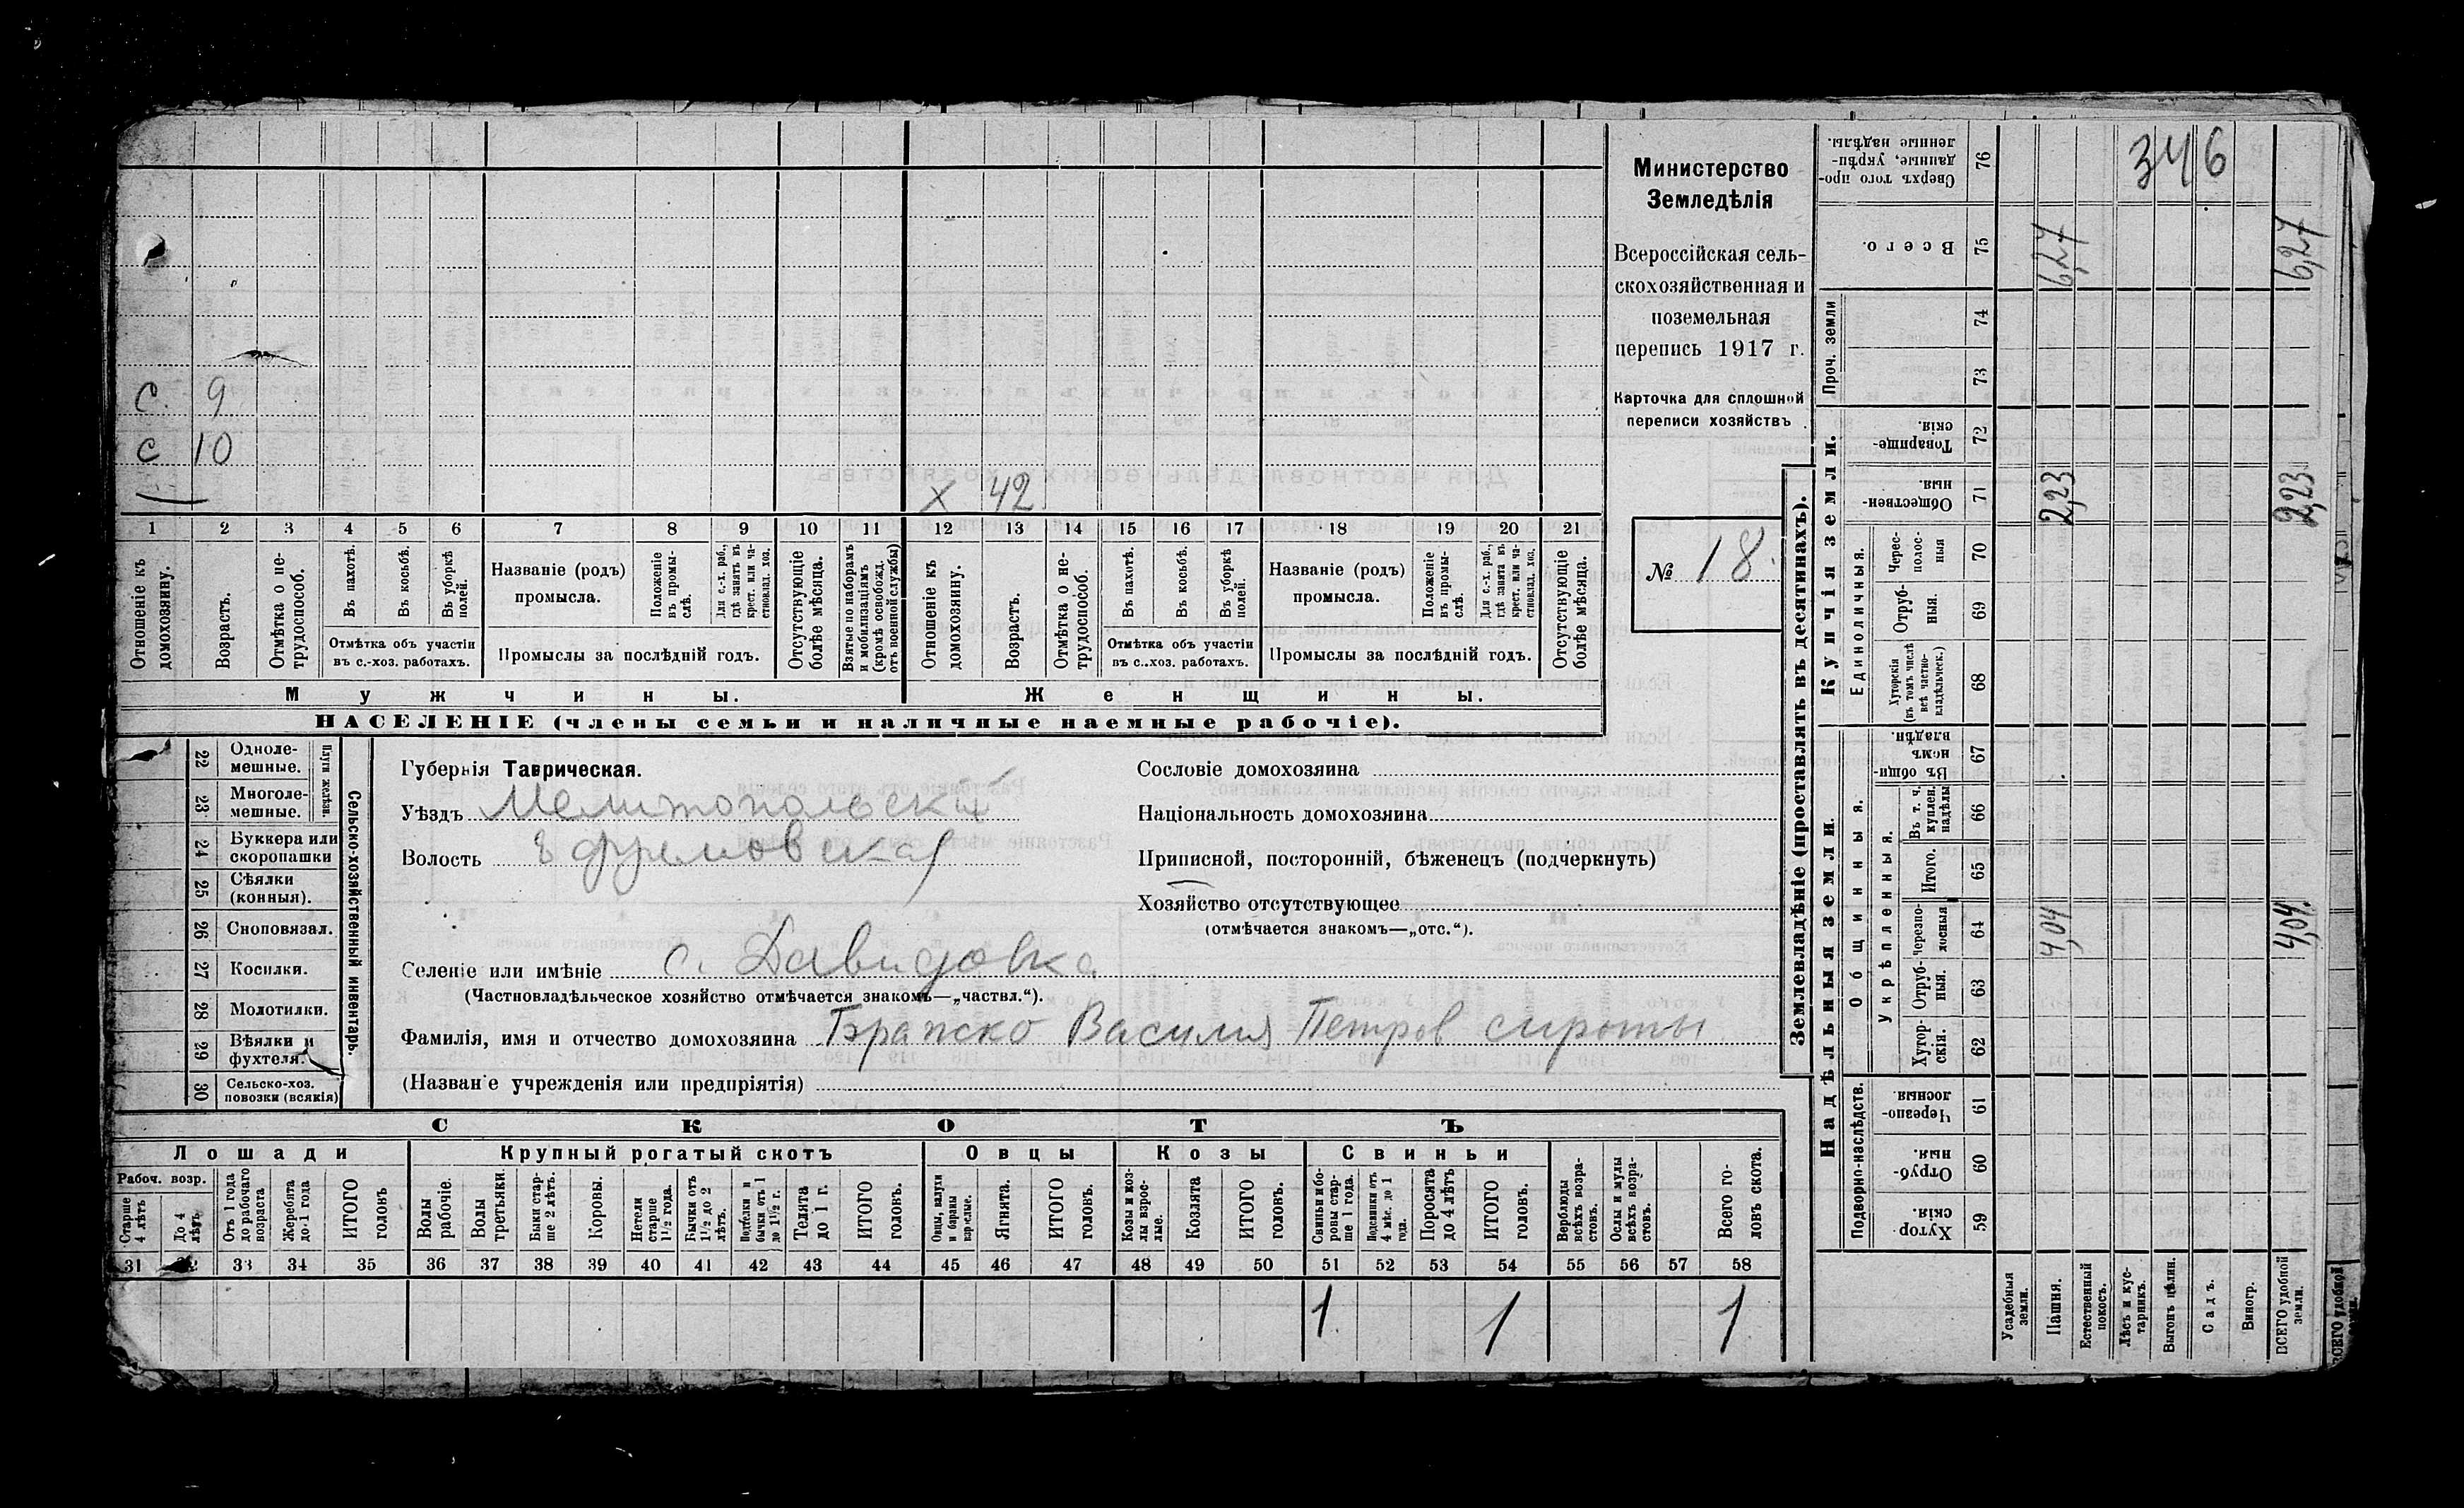 346
Министерство
Земледѣлія
Всероссійская сель-
скохозяйственная и
поземельная
перепись 1917 г.
Карточка для сплошной
переписи хозяйствъ
№ 18.
С. 9
с 10
х 42
1 2 3 4 5 6 7 8 9 10 11 12 13 14 15 16 17 18 19 20 21
Отношеніе къ домохозяину.
Возрастъ.
Отмѣтка о не-трудоспособ.
Въ пахотѣ.
Въ косьбѣ.
Въ уборкѣ полей.
Отмѣтка объ участіи
въ с.-хоз. работахъ.
Названіе (родъ)
промысла.
Положеніе въ промы-слѣ.
Для с.-х. раб., гдѣ занятъ въ крест. или ча-стновлад. хоз.
Промыслы за послѣдній годъ.
Отсутствующіе болѣе мѣсяца.
Взятые по наборамъ и мобилизаціямъ (кромѣ освобожд. отъ военной службы)
Отношеніе къ домохозяину.
Возрастъ.
Отмѣтка о не-трудоспособ.
Въ пахотѣ.
Въ косьбѣ.
Въ уборкѣ полей.
Отмѣтка объ участіи
въ с..хоз. работахъ.
Названіе (родъ)
промысла.
Положеніе въ промы-слѣ.
Для с.-х. раб., гдѣ занята въ крест. или ча-стновлад. хоз.
Промыслы за послѣдній годъ.
Отсутствующіе болѣе мѣсяца.
Мужчины.
Женщины.
НАСЕЛЕНІЕ (члены семьи и наличные наемные рабочіе).
22 Одноле-мешные.
23 Многоле-мешные.
24 Буккера или скоропашки
25 Сѣялки (конныя).
26 Сноповязал.
27 Косилки.
28 Молотилки.
29 Вѣялки и фухтеля.
30 Сельско-хоз. повозки (всякія)
Сельско-хозяйственный инвентарь.
Губернія Таврическая.
Уѣздъ Мелитопольскій
Волость Ефремовская
Селеніе или имѣніе с. Давидовка
(Частновладѣльческое хозяйство отмѣчается знакомъ—„частвл.“).
Фамилія, имя и отчество домохозяина Василия Петров сироты
(Названіе учрежденія или предпріятія)
Сословіе домохозяина
Національность домохозяина
Приписной, посторонній, бѣженецъ (подчеркнуть)
Хозяйство отсутствующее
(отмѣчается знакомъ—„отс.“).
СКОТЪ
Лошади
Крупный рогатый скотъ
Овцы
Козы
Свиньи
Рабоч. возр.
Старше 4 лѣтъ
До 4 лѣтъ
Отъ 1 года до рабочаго возраста
Жеребята до 1 года
ИТОГО головъ
Волы рабочіе.
Волы третьяки.
Быки стар-ше 2 лѣтъ.
Коровы.
Нетели старше 1 1/2 года.
Бычки отъ 1 1/2 до 2 лѣтъ.
Подтелки и бычки отъ 1 до 1 1/2 г.
Телята до 1 г.
ИТОГО головъ.
Овцы, валухи и бараны взрослые.
Ягнята.
ИТОГО головъ.
Козы и коз-лы взрос-лые.
Козлята
ИТОГО головъ.
Свиньи и бо-ровы стар-ше 1 года.
Подсвинки отъ 4 мѣс. до 1 года.
Поросята до 4 лѣтъ
ИТОГО головъ.
Верблюды всѣхъ возра-стовъ.
Ослы и мулы всѣхъ возра-стовъ.
Всего го-ловъ скота.
31 33 34 35 36 37 38 39 40 41 42 43 44 45 46 47 48 49 50 51 52 53 54 55 56 57 58
1 1 1
Землевладѣніе (проставлять въ десятинахъ).
Купчія земли.
Надѣльныя земли.
Проч. земли
Единоличныя.
Общинныя.
Укрѣпленныя.
Подворно-наслѣдств.
76 Сверхъ того про-данные, укрѣп-ленные надѣлы.
75 Всего. 6,27 6,27
74
73
72 Товарище-скія.
71 Обществен-ныя. 2,23 2,23
70 Черес-полос-ныя
69 Отруб-ныя.
68 Хуторскія (въ томъ числѣ всѣ частно-владѣльческ.)
67 Въ общи-номъ владѣн.
66 Въ т. ч. куплен. надѣлы
65 Итого.
64 Черезпо-лосныя 4,04 4,04.
63 Отруб-ныя.
62 Хутор-скія.
61 Черезпо-лосныя.
60 Отруб-ныя.
59 Хутор-скія
Усадебныя земли.
Пашня.
Естественный покосъ.
Лѣсъ и кус-тарникъ.
Выгонъ цѣлин.
Садъ.
Виногр.
ВСЕГО удобной земли.